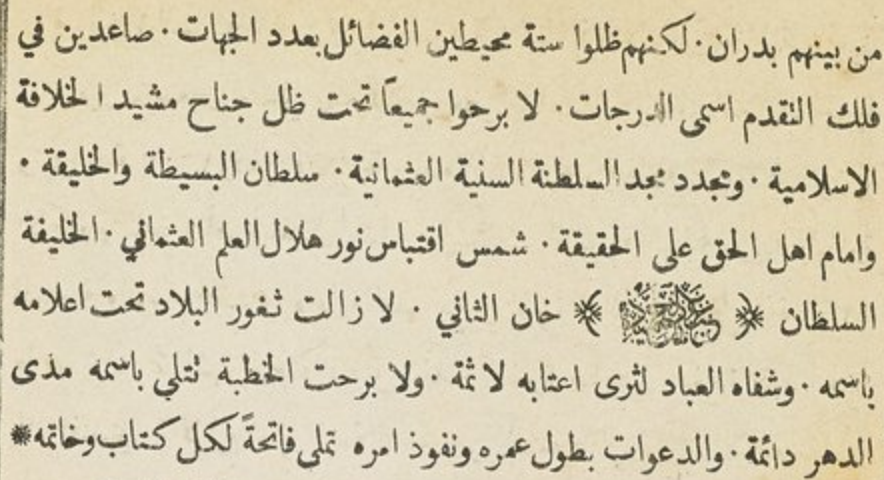 من بينهم بدران · لكنهم ظلوا ستة محيطين الفضائل بعدد الجهات · صاعدين في
فلك التقدم اسمى الدرجات · لا برحوا جميعاً تحت ظل جناح مشيد الخلافة
الاسلامية · ومجدد مجد السلطنة السنية العثمانية · سلطان البسيطة والخليقة ·
وامام اهل الحق على الحقيقة · شمس اقتباس نور هلال العلم العثماني · الخليفة
السلطان ﴿ ﴾ خان الثاني · لا زالت ثغور البلاد تحت اعلامه
باسمه · وشفاه العباد لثرى اعتابه لاثمة · ولا برحت الخطبة تتلى باسمه مدى
الدهر دائمة · والدعوات بطول عمره ونفوذ امره تملى فاتحةً لكل كتاب وخاتمه *